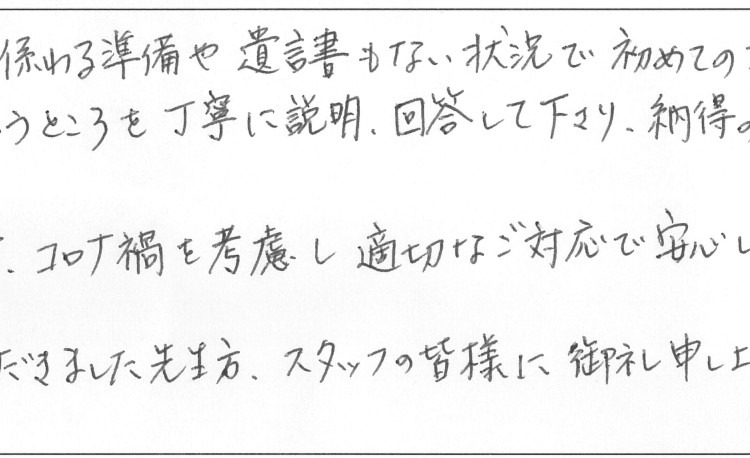 係わる準備や遺言書もない状況で初めての
うところを丁寧に説明、回答して下さり、納得の
、コロナ禍を考慮し適切なご対応で安心し
だきました先生方、スタッフの皆様に御礼申し上